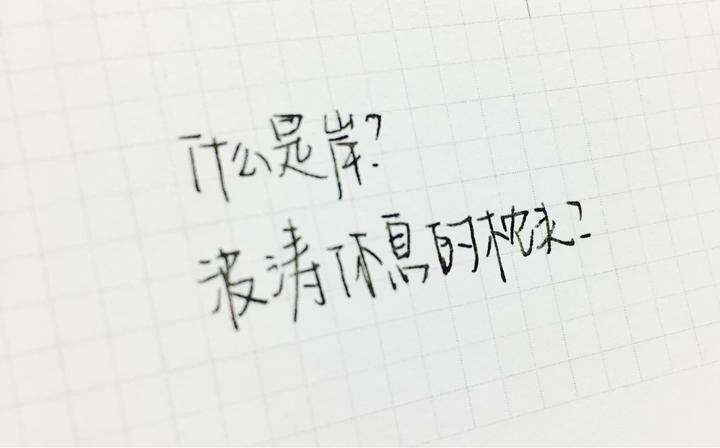 什么是岸?
波涛休息的枕头?